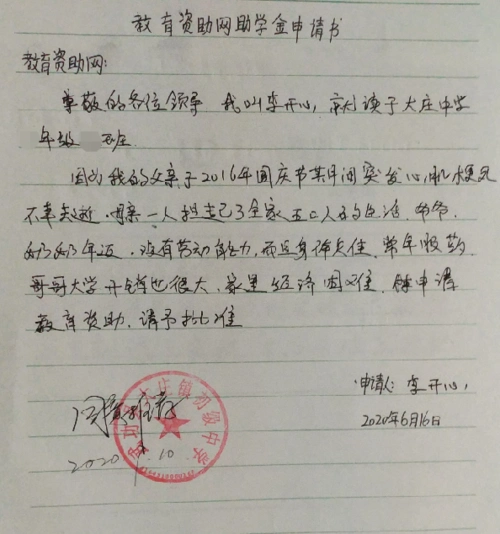 教育资助网助学金申请书
教育资助网:
尊敬的各位领导 我叫李开心,就读于大庄中学
年级 班
因为我的父亲于2016年国庆节某月间突发心肌梗死
不幸去逝.母亲一人担起了全家五口人的生活.爷爷、
奶奶年迈,没有劳动能力,而且身体欠佳.常年服药,
哥哥大学开销也很大、家里经济困难.特申请
教育资助.请予批准
申请人:李开心,
2020年6月16日
同意推荐
大庄镇初级中学
2020 10